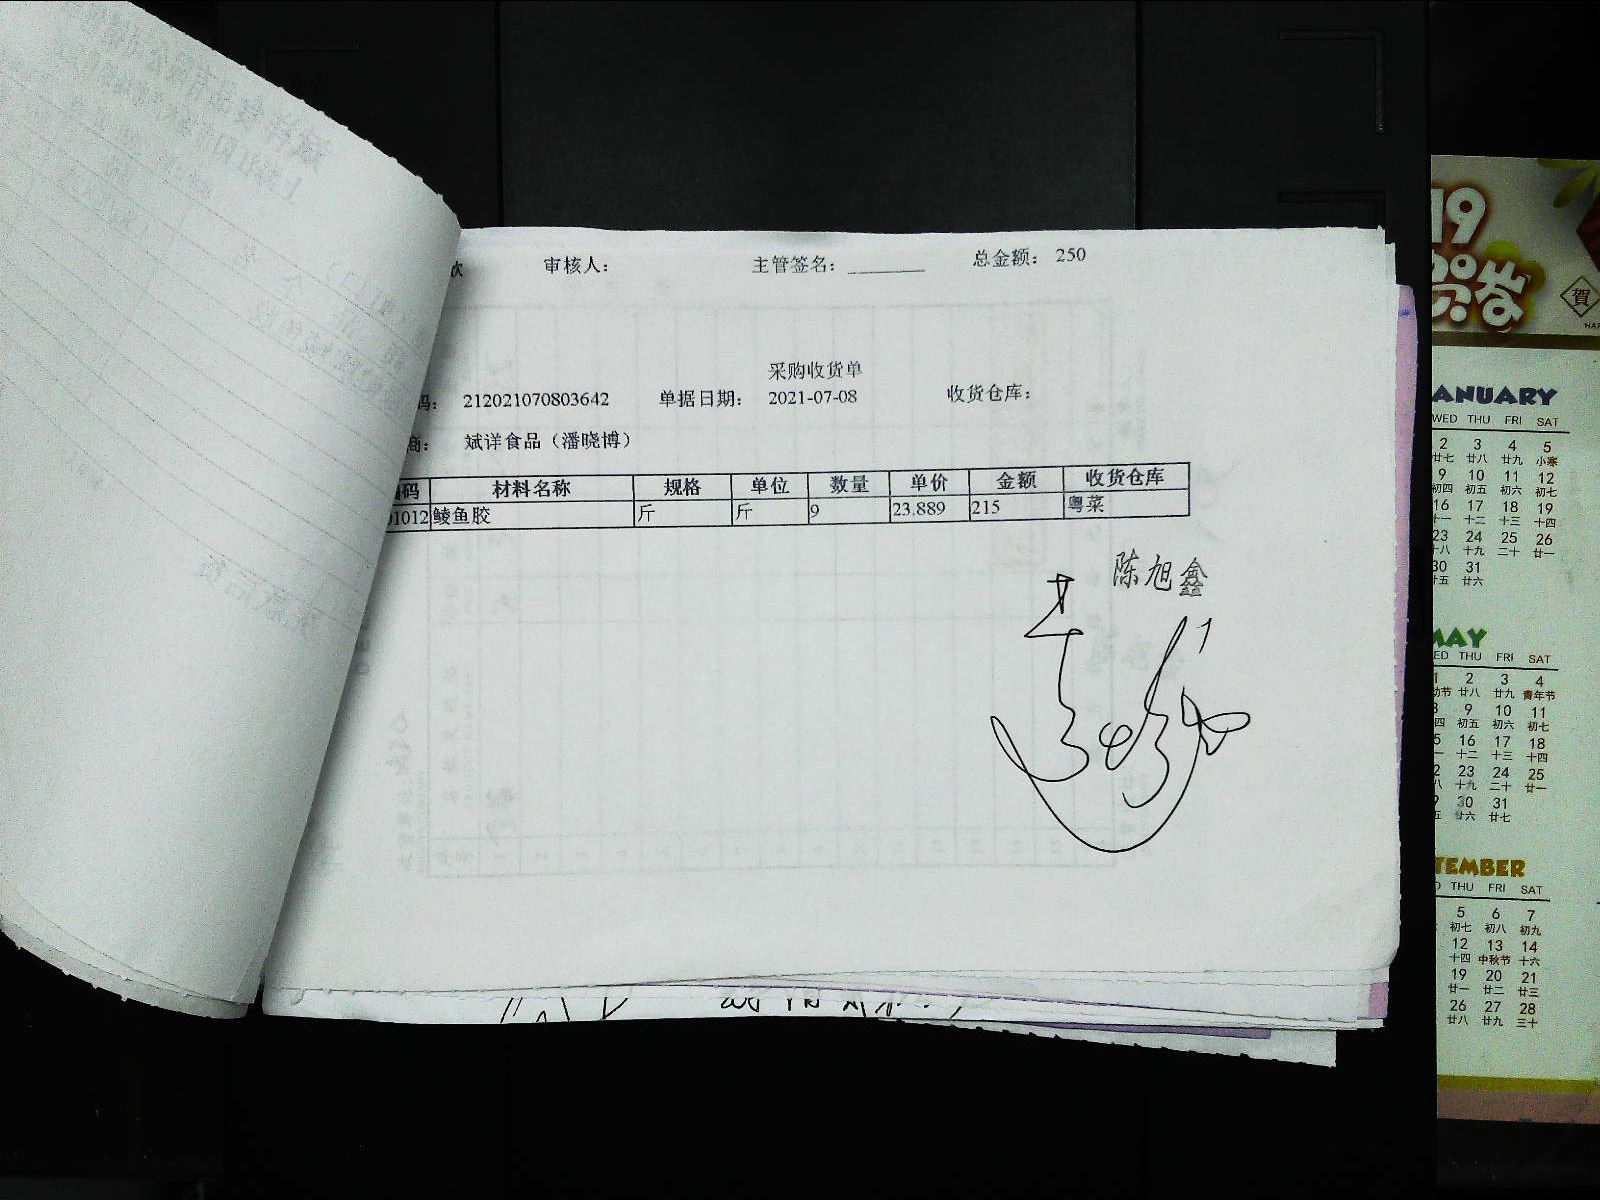 审核人： 主管签名：________ 总金额： 250
采购收货单
码： 212021070803642 单据日期： 2021-07-08 收货仓库：
商： 斌详食品（潘晓博）
编码 材料名称 规格 单位 数量 单价 金额 收货仓库
01012 鲮鱼胶 斤 斤 9 23.889 215 粤菜
陈旭鑫
19
賀
ANUARY
WED THU FRI SAT
2 3 4 5
廿七 廿八 廿九 小寒
9 10 11 12
初四 初五 初六 初七
16 17 18 19
十一 十二 十三 十四
23 24 25 26
十八 十九 二十 廿一
30 31
廿五 廿六
MAY
ED THU FRI SAT
1 2 3 4
动节 廿八 廿九 青年节
8 9 10 11
四 初五 初六 初七
5 16 17 18
一 十二 十三 十四
2 23 24 25
八 十九 二十 廿一
9 30 31
五 廿六 廿七
TEMBER
D THU FRI SAT
5 6 7
初七 初八 初九
12 13 14
十四 中秋节 十六
19 20 21
廿一 廿二 廿三
26 27 28
廿八 廿九 三十